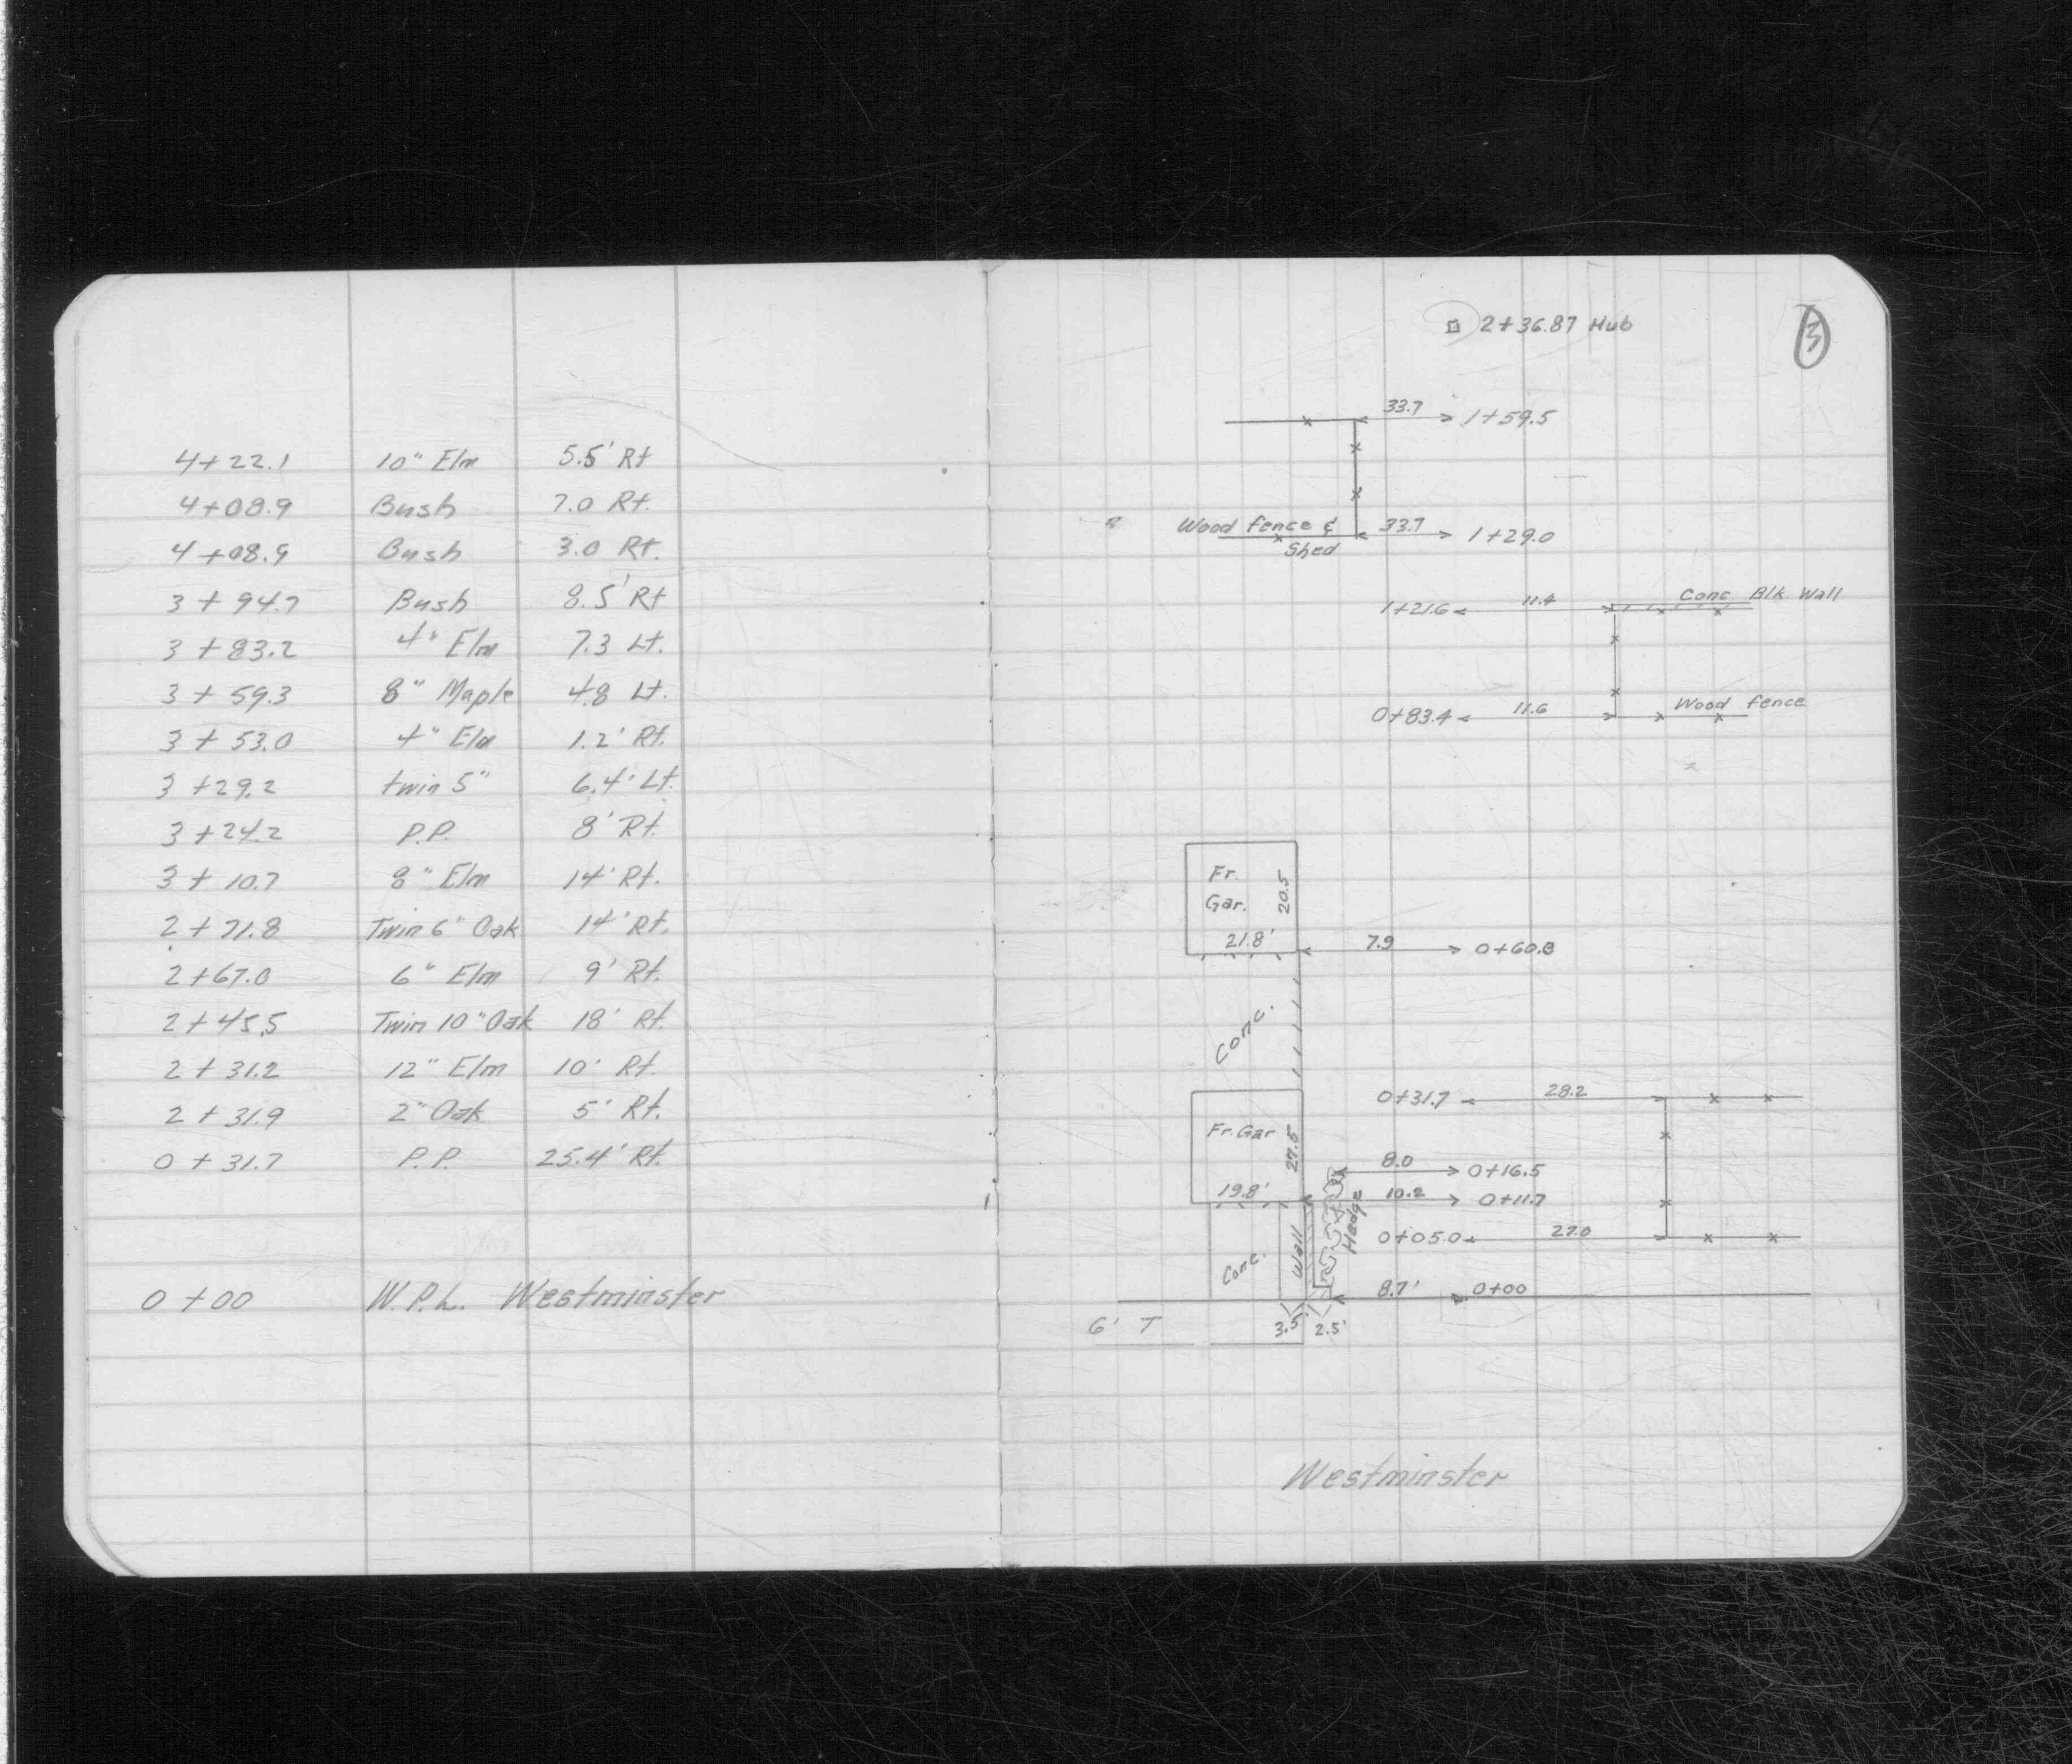 4+22.1 10" Elm 5.5' Rt
4+08.9 Bush 7.0 Rt.
4+08.9 Bush 3.0 Rt.
3+94.7 Bush 8.5' Rt
3+83.2 4" Elm 7.3 Lt.
3+59.3 8" Maple 4.8 Lt.
3+53.0 4" Elm 1.2' Rt.
3+29.2 twin 5" 6.4' Lt.
3+24.2 P.P. 8' Rt.
3+10.7 8" Elm 14' Rt.
2+71.8 Twin 6" Oak 14' Rt.
2+67.0 6" Elm 9' Rt.
2+45.5 Twin 10" Oak 18' Rt.
2+31.2 12" Elm 10' Rt.
2+31.9 2" Oak 5' Rt.
0+31.7 P.P. 25.4' Rt.
0+00 W.P.L. Westminster
2+36.87 Hub
3
33.7 1+59.5
Wood fence & 33.7 1+29.0
Shed
1+21.6 11.4 Conc Blk Wall
0+83.4 11.6 Wood fence
Fr.
Gar. 20.5
21.8' 7.9 0+60.8
Conc.
0+31.7 28.2
Fr. Gar 27.5
8.0 0+16.5
19.8' 10.2 0+11.7
Conc. Wall Hedge 0+05.0 27.0
8.7' 0+00
6' T 3.5' 2.5'
Westminster